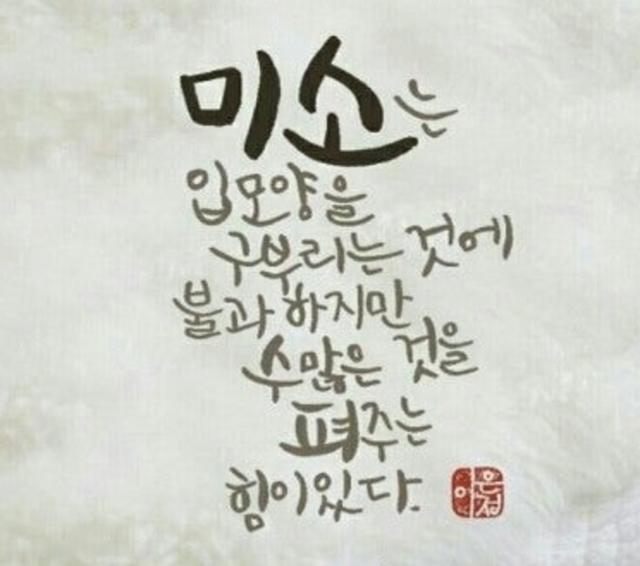 미소는
입모양을
구부리는 것에
불과하지만
수많은 것을
펴주는
힘이있다.